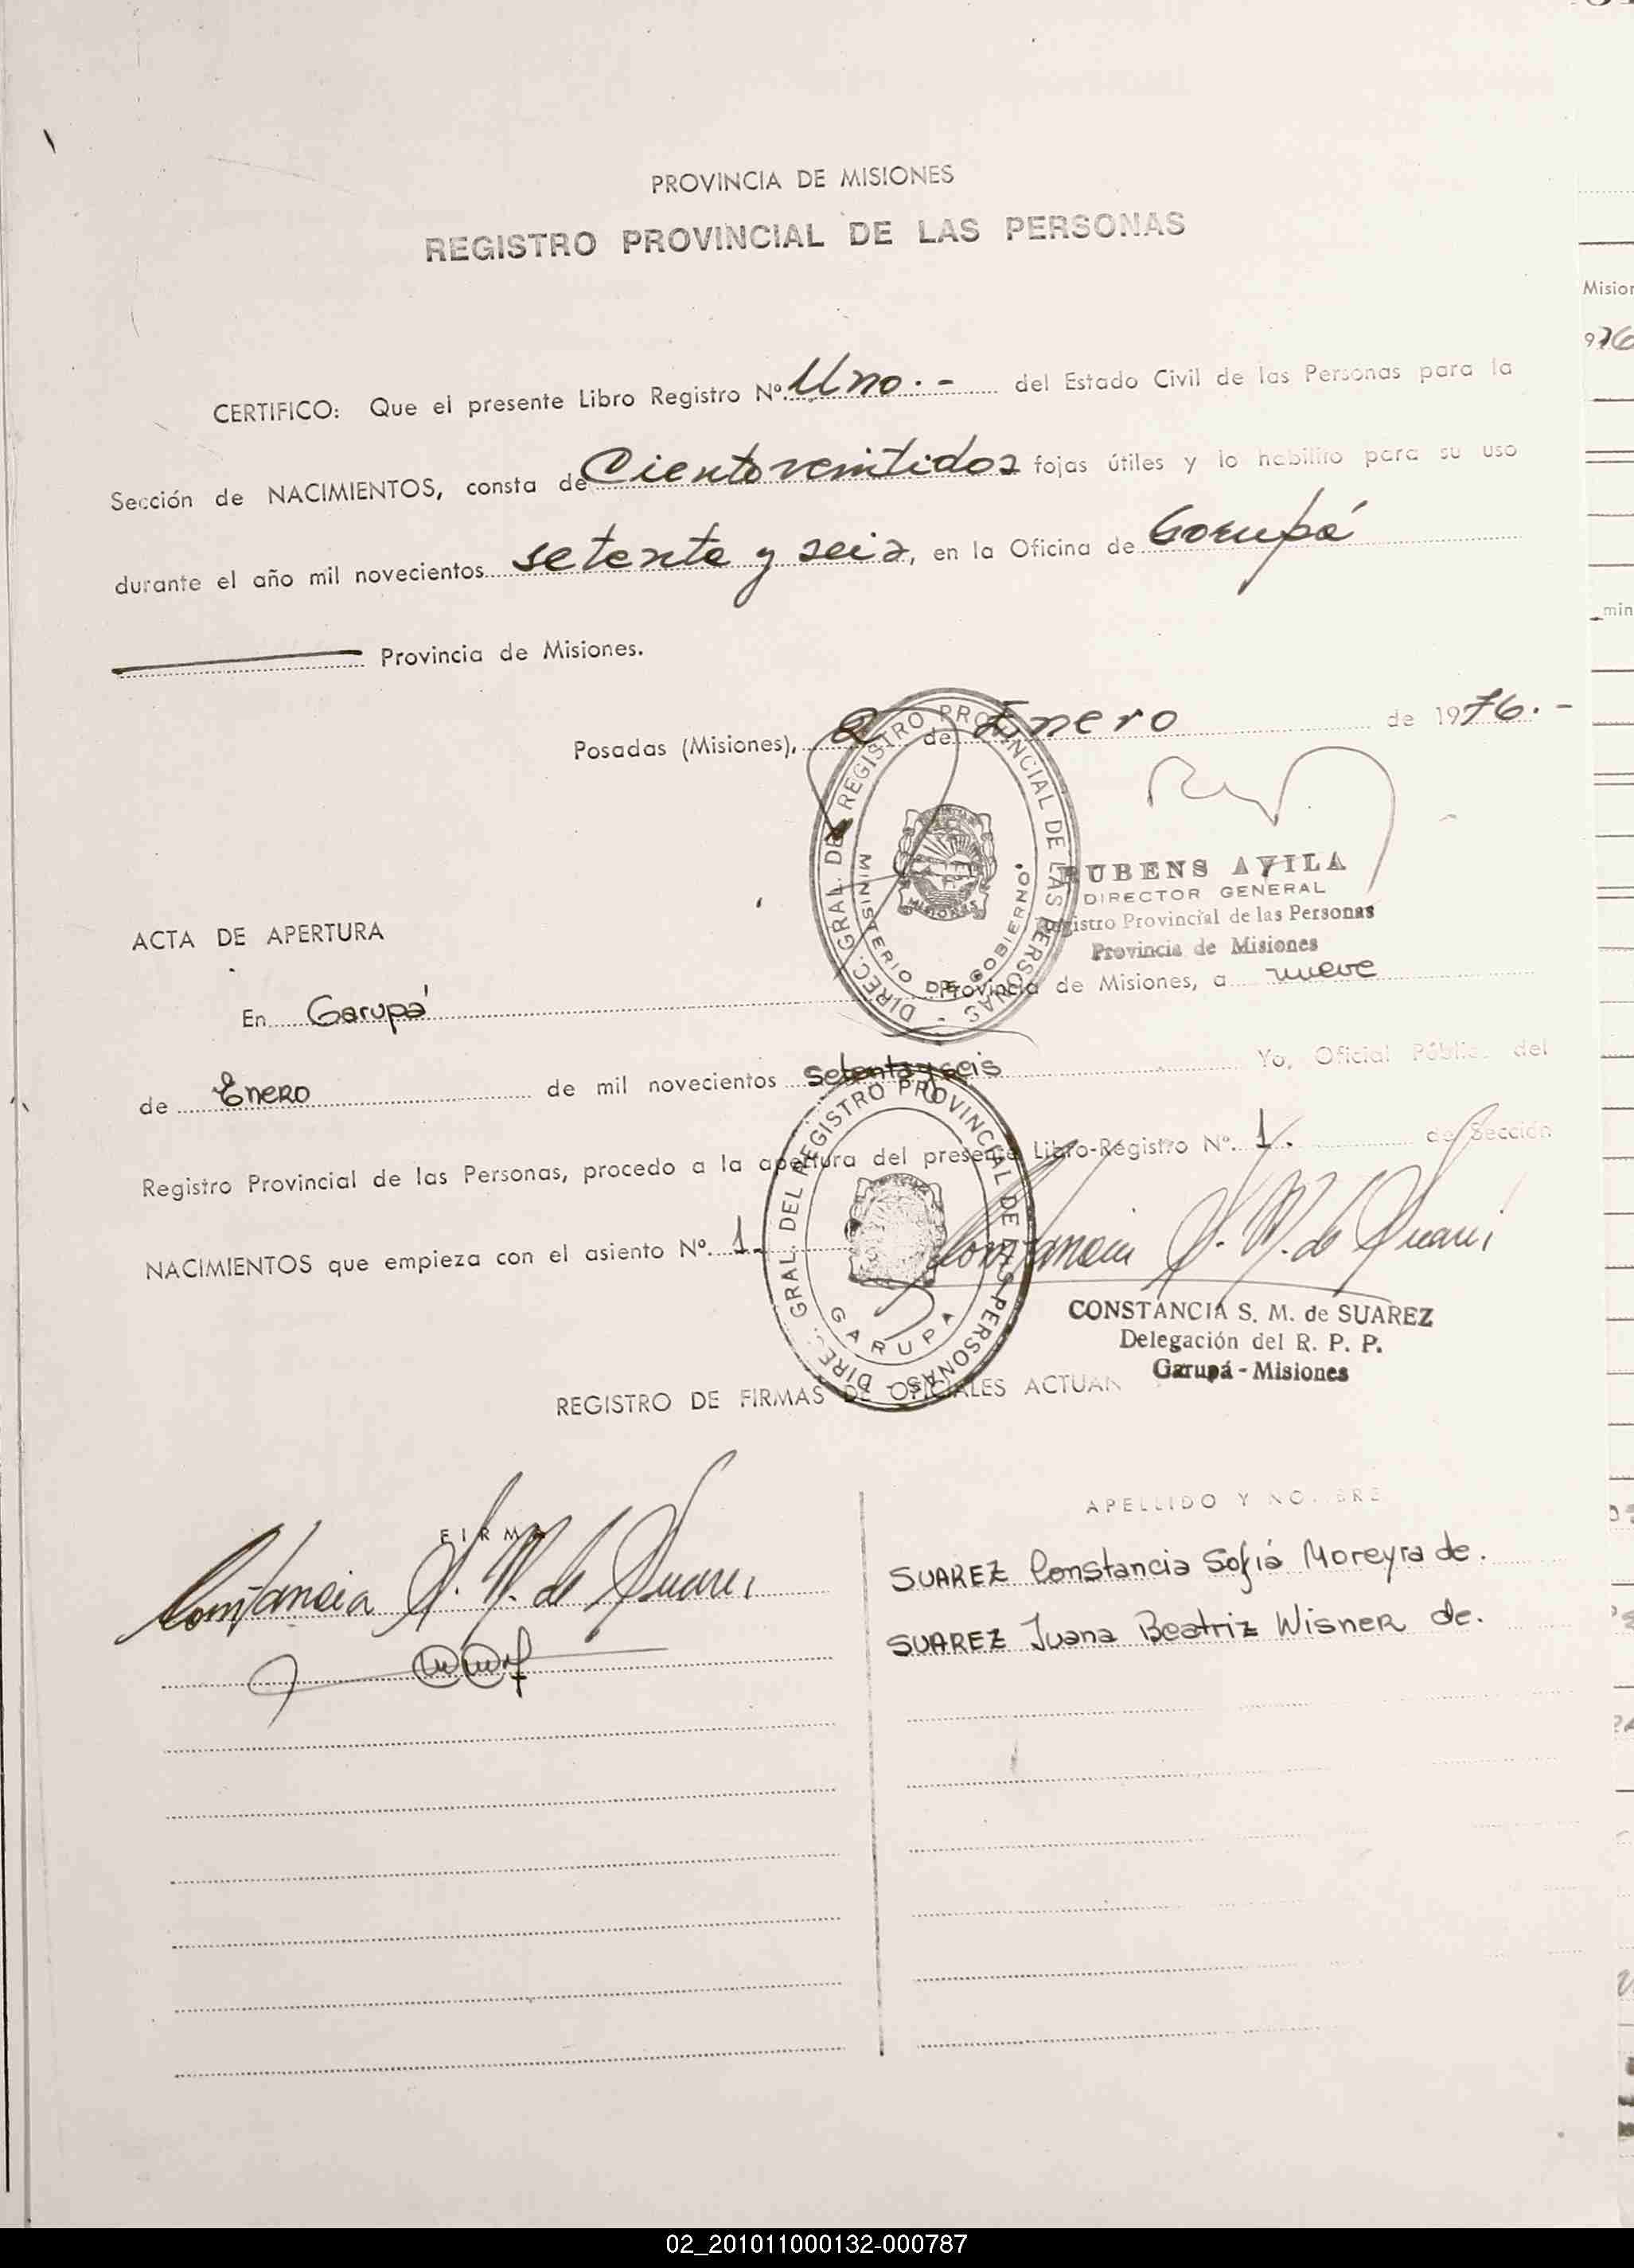 PROVINCIA DE MISIONES
REGISTRO PROVINCIAL DE LAS PERSONAS
CERTIFICO: Que el presente Libro Registro Nº Uno.- del Estado Civil de las Personas para la
Sección de NACIMIENTOS, consta de Ciento veintidos fojas útiles y lo habilito para su uso
durante el año mil novecientos setenta y seis, en la Oficina de Garupá
Provincia de Misiones.
Posadas (Misiones), 2 de Enero de 1976.-
DIREC. GRAL. DEL REGISTRO PROVINCIAL DE LAS PERSONAS -
MINISTERIO DE GOBIERNO
MISIONES
RUBENS AVILA
DIRECTOR GENERAL
Registro Provincial de las Personas
Provincia de Misiones
ACTA DE APERTURA
En Garupá Provincia de Misiones, a nueve
de Enero de mil novecientos setenta y seis Yo, Oficial Público del
Registro Provincial de las Personas, procedo a la apertura del presente Libro-Registro Nº. 1. de Sección
NACIMIENTOS que empieza con el asiento Nº. 1.-
DIREC. GRAL. DEL REGISTRO PROVINCIAL DE LAS PERSONAS -
GARUPA
Constancia S. M. de Suarez
CONSTANCIA S. M. de SUAREZ
Delegación del R. P. P.
Garupá - Misiones
REGISTRO DE FIRMAS DE OFICIALES ACTUAN
FIRMA
APELLIDO Y NOMBRE
Constancia S. M. de Suarez
SUAREZ Constancia Sofiá Moreyra de.
SUAREZ Juana Beatriz Wisner de.
Mision
976
min
02_201011000132-000787